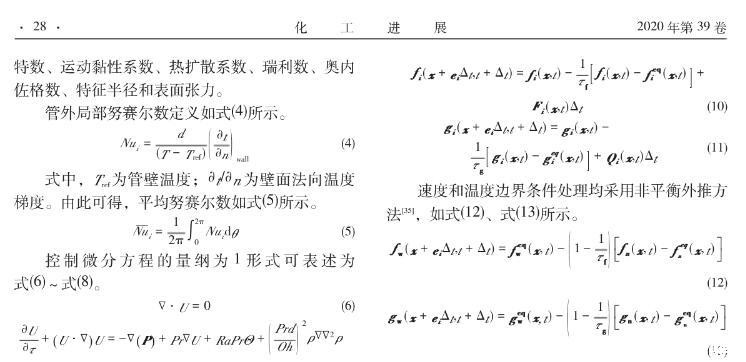 · 28 · 化 工 进 展 2020年第39卷
特数、运动黏性系数、热扩散系数、瑞利数、奥内
佐格数、特征半径和表面张力。
管外局部努赛尔数定义如式(4)所示。
Nu_i = d/(T − T_ref) (∂t/∂n)_wall (4)
式中，T_ref为管壁温度；∂t/∂n为壁面法向温度
梯度。由此可得，平均努赛尔数如式(5)所示。
N̅u̅_i = 1/2π ∫_0^2π Nu_i dθ (5)
控制微分方程的量纲为1形式可表述为
式(6)～式(8)。
∇ · U = 0 (6)
∂U/∂τ + (U · ∇)U = −∇(P) + Pr∇U + RaPrΘ + (Prd/Oh)² ρ∇∇²ρ
f_i(x + e_iΔ_t,t + Δ_t) = f_i(x,t) − 1/τ_f [f_i(x,t) − f_i^eq(x,t)] +
F_i(x,t)Δ_t (10)
g_i(x + e_iΔ_t,t + Δ_t) = g_i(x,t) −
1/τ_g [g_i(x,t) − g_i^eq(x,t)] + Q_i(x,t)Δ_t (11)
速度和温度边界条件处理均采用非平衡外推方
法[35]，如式(12)、式(13)所示。
f_w(x + e_iΔ_t,t + Δ_t) = f_w^eq(x,t) − (1 − 1/τ_f)[f_n(x,t) − f_n^eq(x,t)]
(12)
g_w(x + e_iΔ_t,t + Δ_t) = g_w^eq(x,t) − (1 − 1/τ_g)[g_n(x,t) − g_n^eq(x,t)]